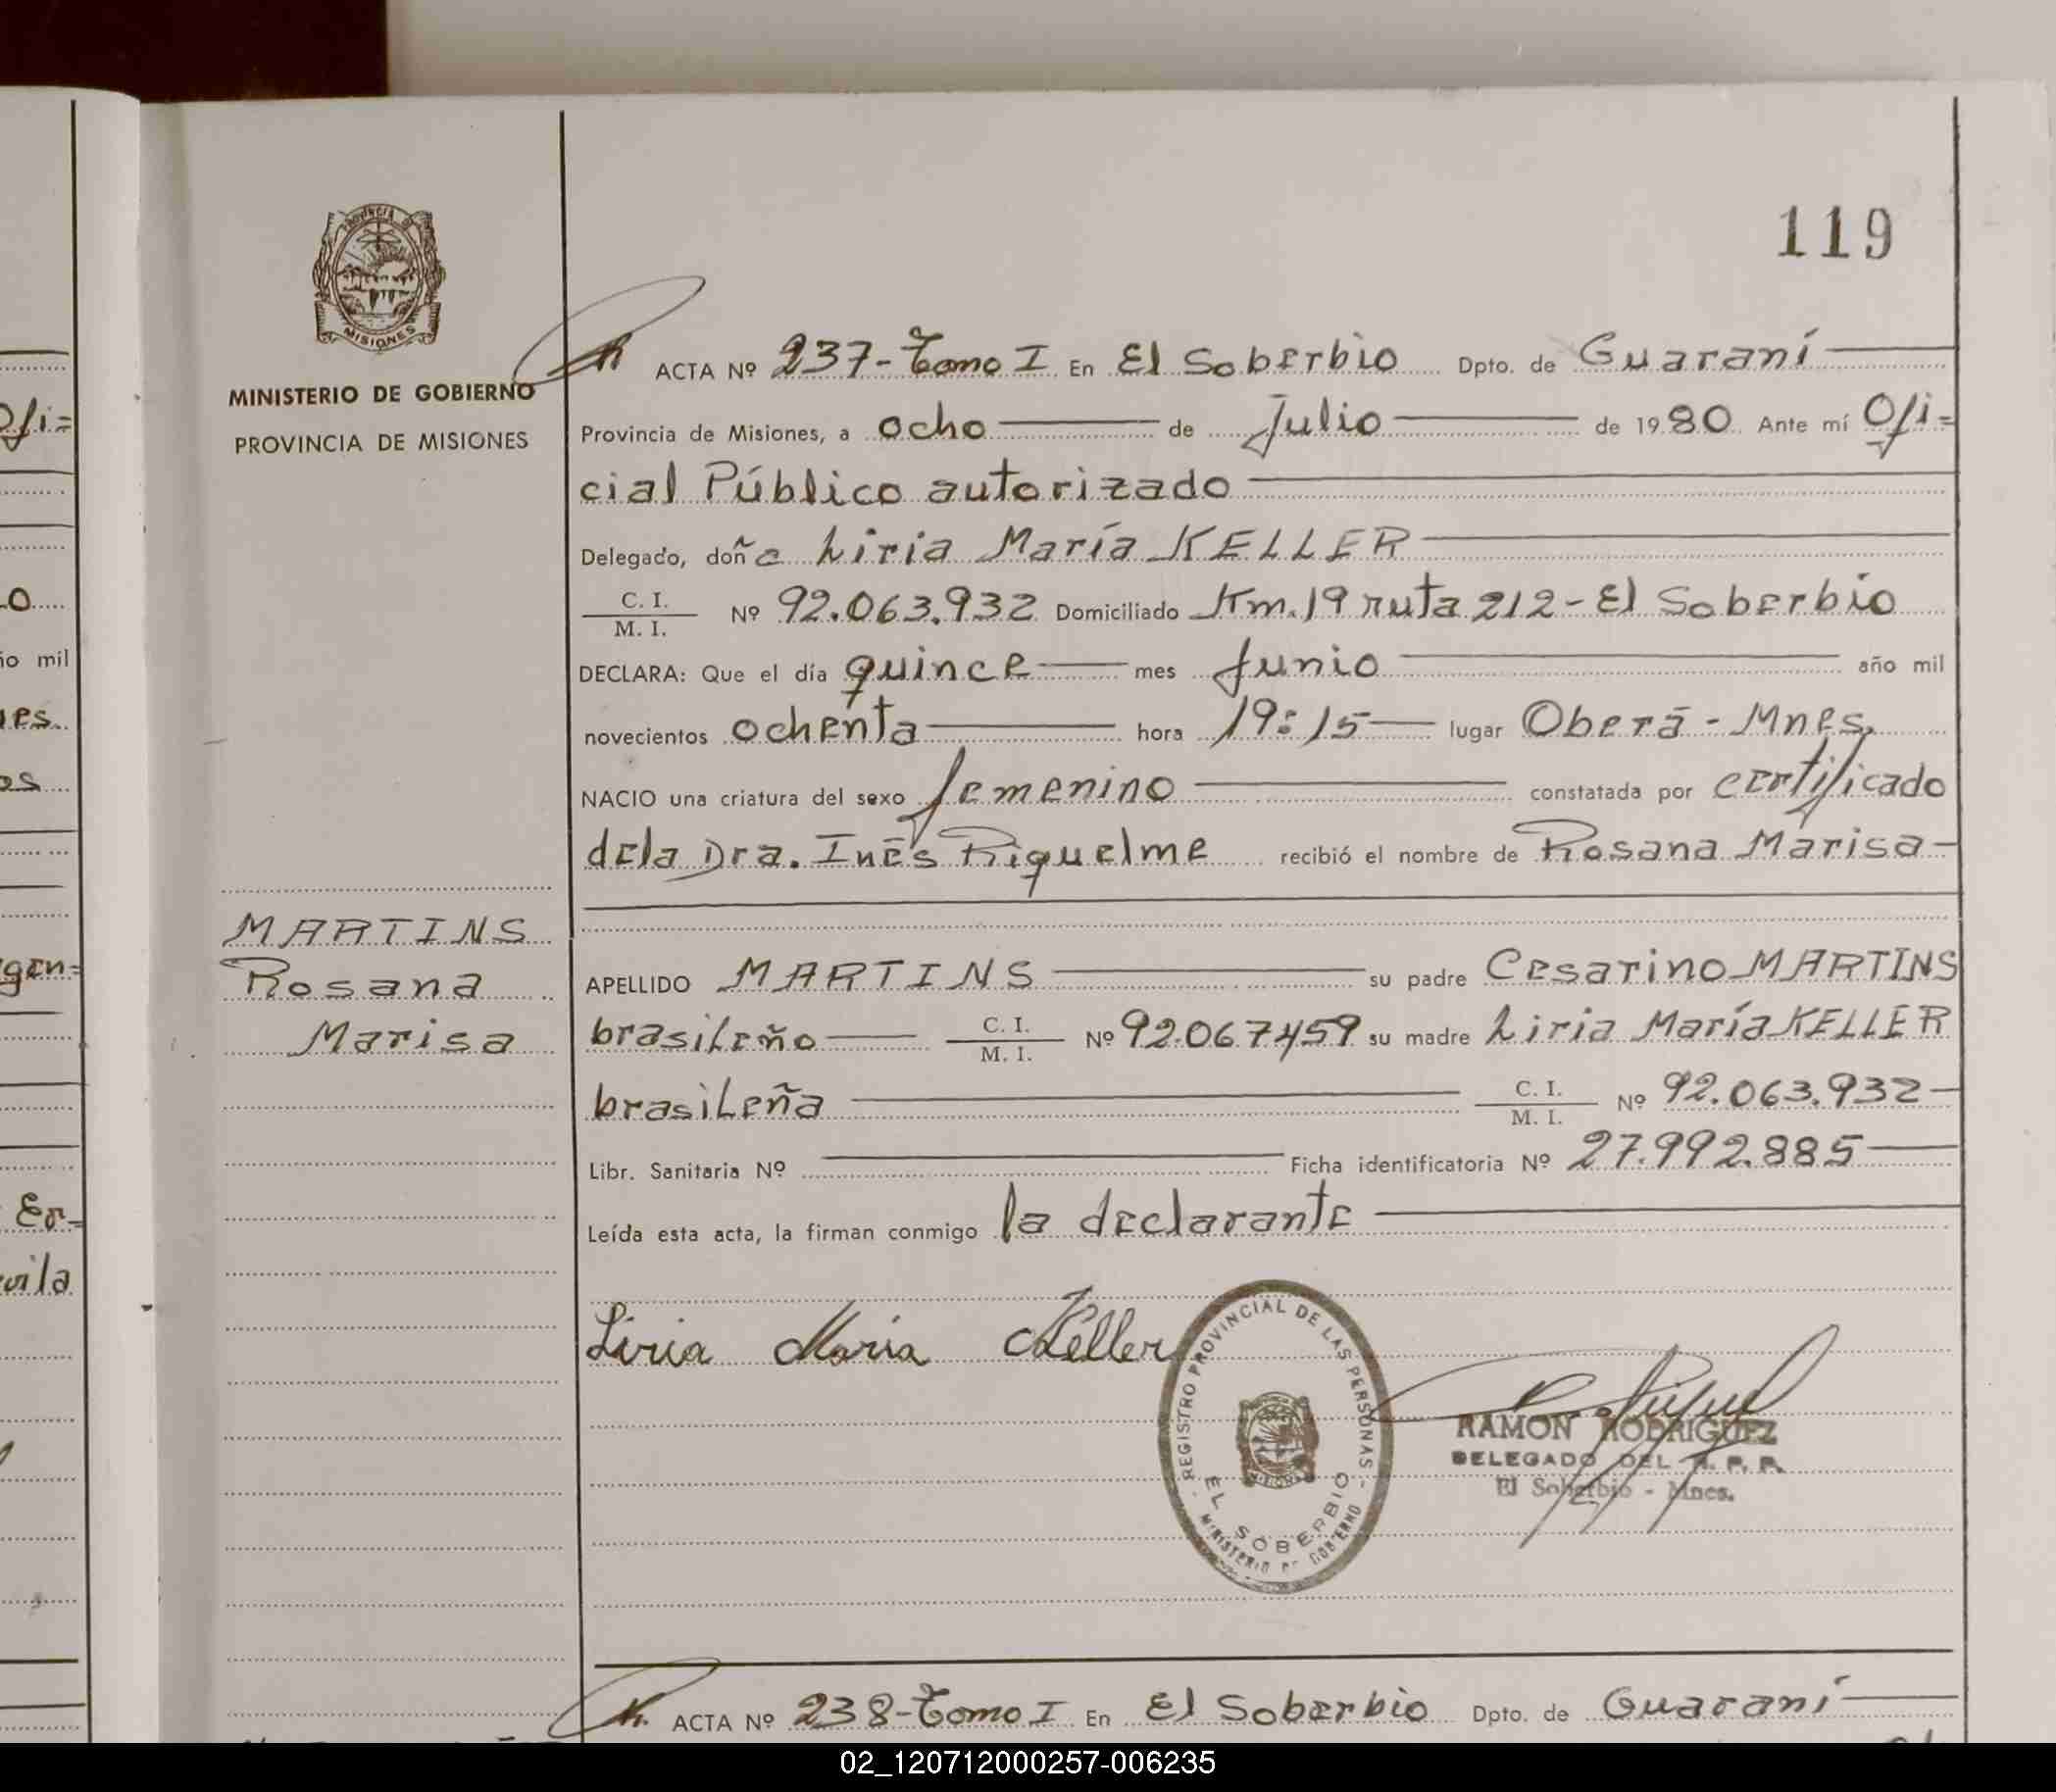 119
PROVINCIA DE
MISIONES
MINISTERIO DE GOBIERNO
PROVINCIA DE MISIONES
ACTA Nº 237-Tomo I En El Soberbio Dpto. de Guaraní
Provincia de Misiones, a ocho de Julio de 1980 Ante mí Ofi=
cial Público autorizado
Delegado, doña Liria María KELLER
C. I.
M. I. Nº 92.063.932 Domiciliado Km.19 ruta 212-El Soberbio
DECLARA: Que el día quince mes Junio año mil
novecientos ochenta hora 19:15 lugar Oberá-Mnes.
NACIO una criatura del sexo femenino constatada por certificado
dela Dra. Inés Riquelme recibió el nombre de Rosana Marisa-
MARTINS
Rosana
Marisa
APELLIDO MARTINS su padre Cesarino MARTINS
brasileño C. I.
M. I. Nº 92.067459 su madre Liria María KELLER
brasileña C. I.
M. I. Nº 92.063.932-
Libr. Sanitaria Nº Ficha identificatoria Nº 27.992.885
Leída esta acta, la firman conmigo la declarante
Liria Maria Keller
REGISTRO PROVINCIAL DE LAS PERSONAS
EL SOBERBIO
MINISTERIO DE GOBIERNO
RAMON RODRIGUEZ
DELEGADO DEL R. P. P.
El Soberbio - Mnes.
ACTA Nº 238-Tomo I En El Soberbio Dpto. de Guaraní
Ofi=
o
ño mil
nes.
os
gen=
Er-
vila
02_120712000257-006235